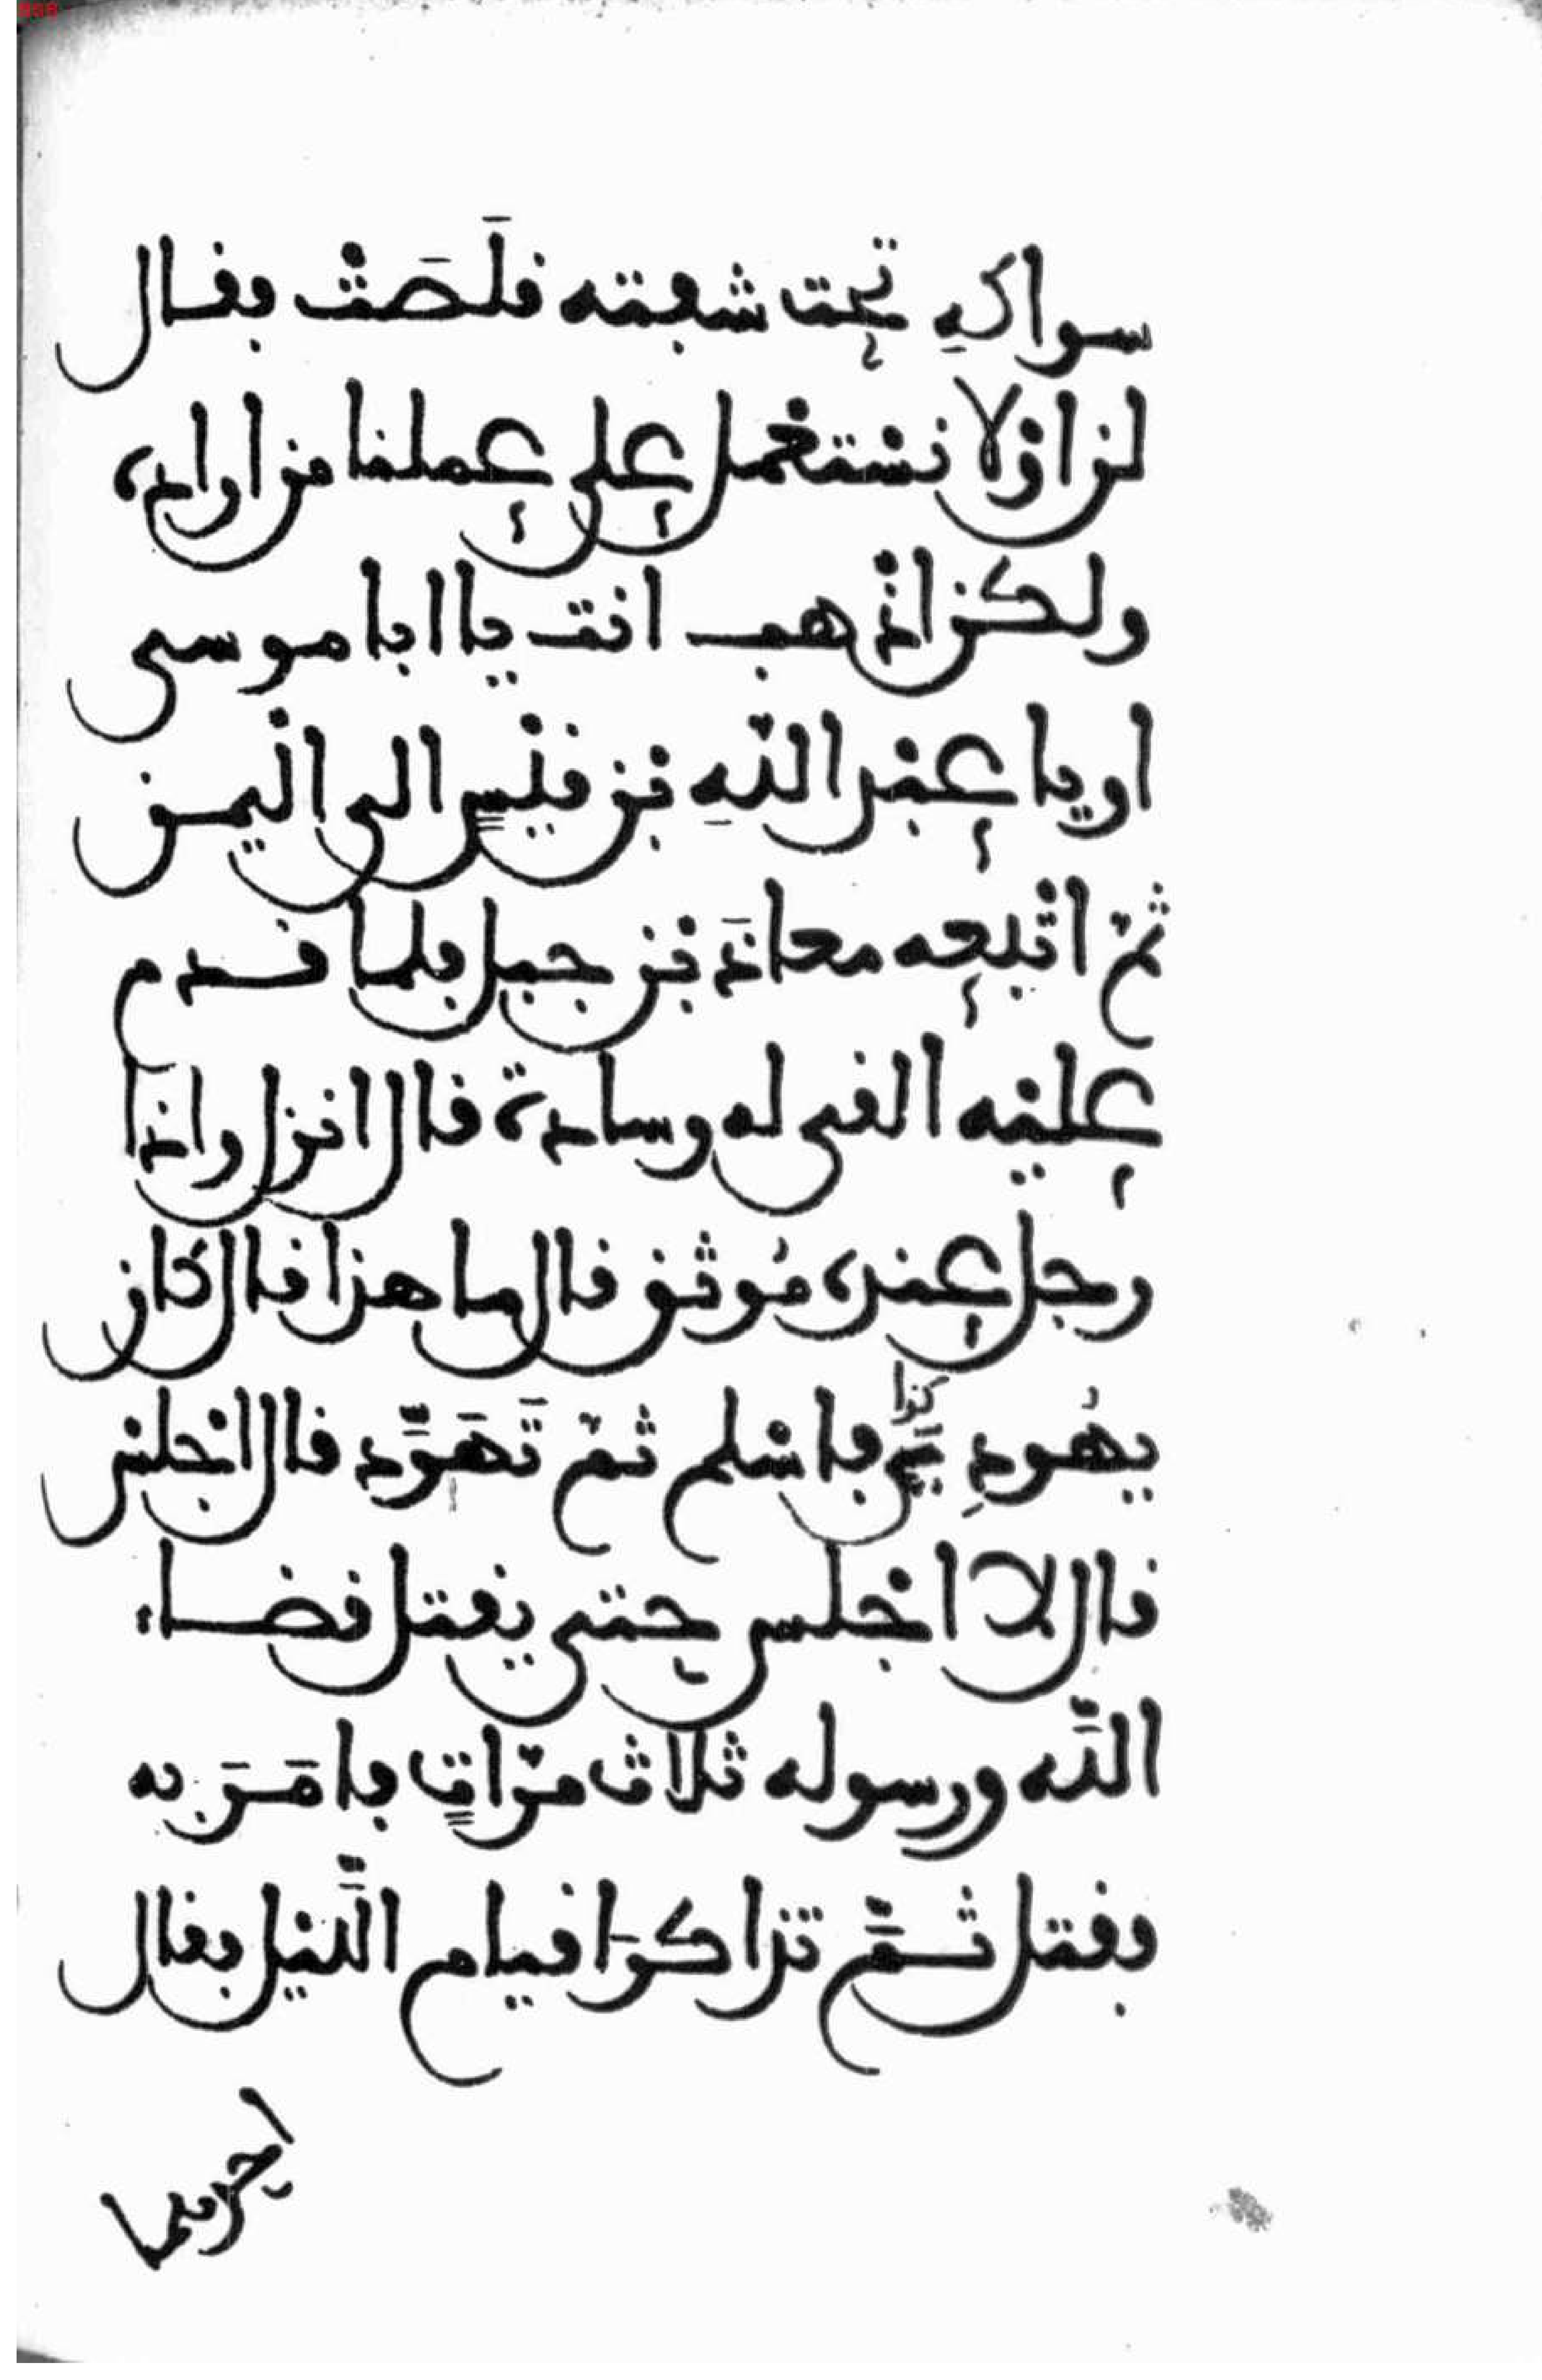 سواكِهِ تحت شفته قلَصَتْ فقال
لن اوْ لا نسْتعْمل على عملنا من اراده
ولكن اذْهب انت يا ابا موسى
او يا عبْد اللّهِ بْن قيْسٍ الى الْيمن
ثمّ اتْبعه معاذَ بْن جبل فلما قدم
عليْه القى له وسادة قال انزل واذا
رجل عنده مُوثق قال ما هذا قال كان
يهُودِيًّا فاسْلم ثمّ تَهَوَّد قال اجْلسْ
كذا
قال لا اجْلس حتى يقتل قضاء
اللَّه ورسوله ثلاث مرّاتٍ فامَرَ به
فقتل ثمَّ تذاكرَا قيام اللَّيْل فقال
احدهما